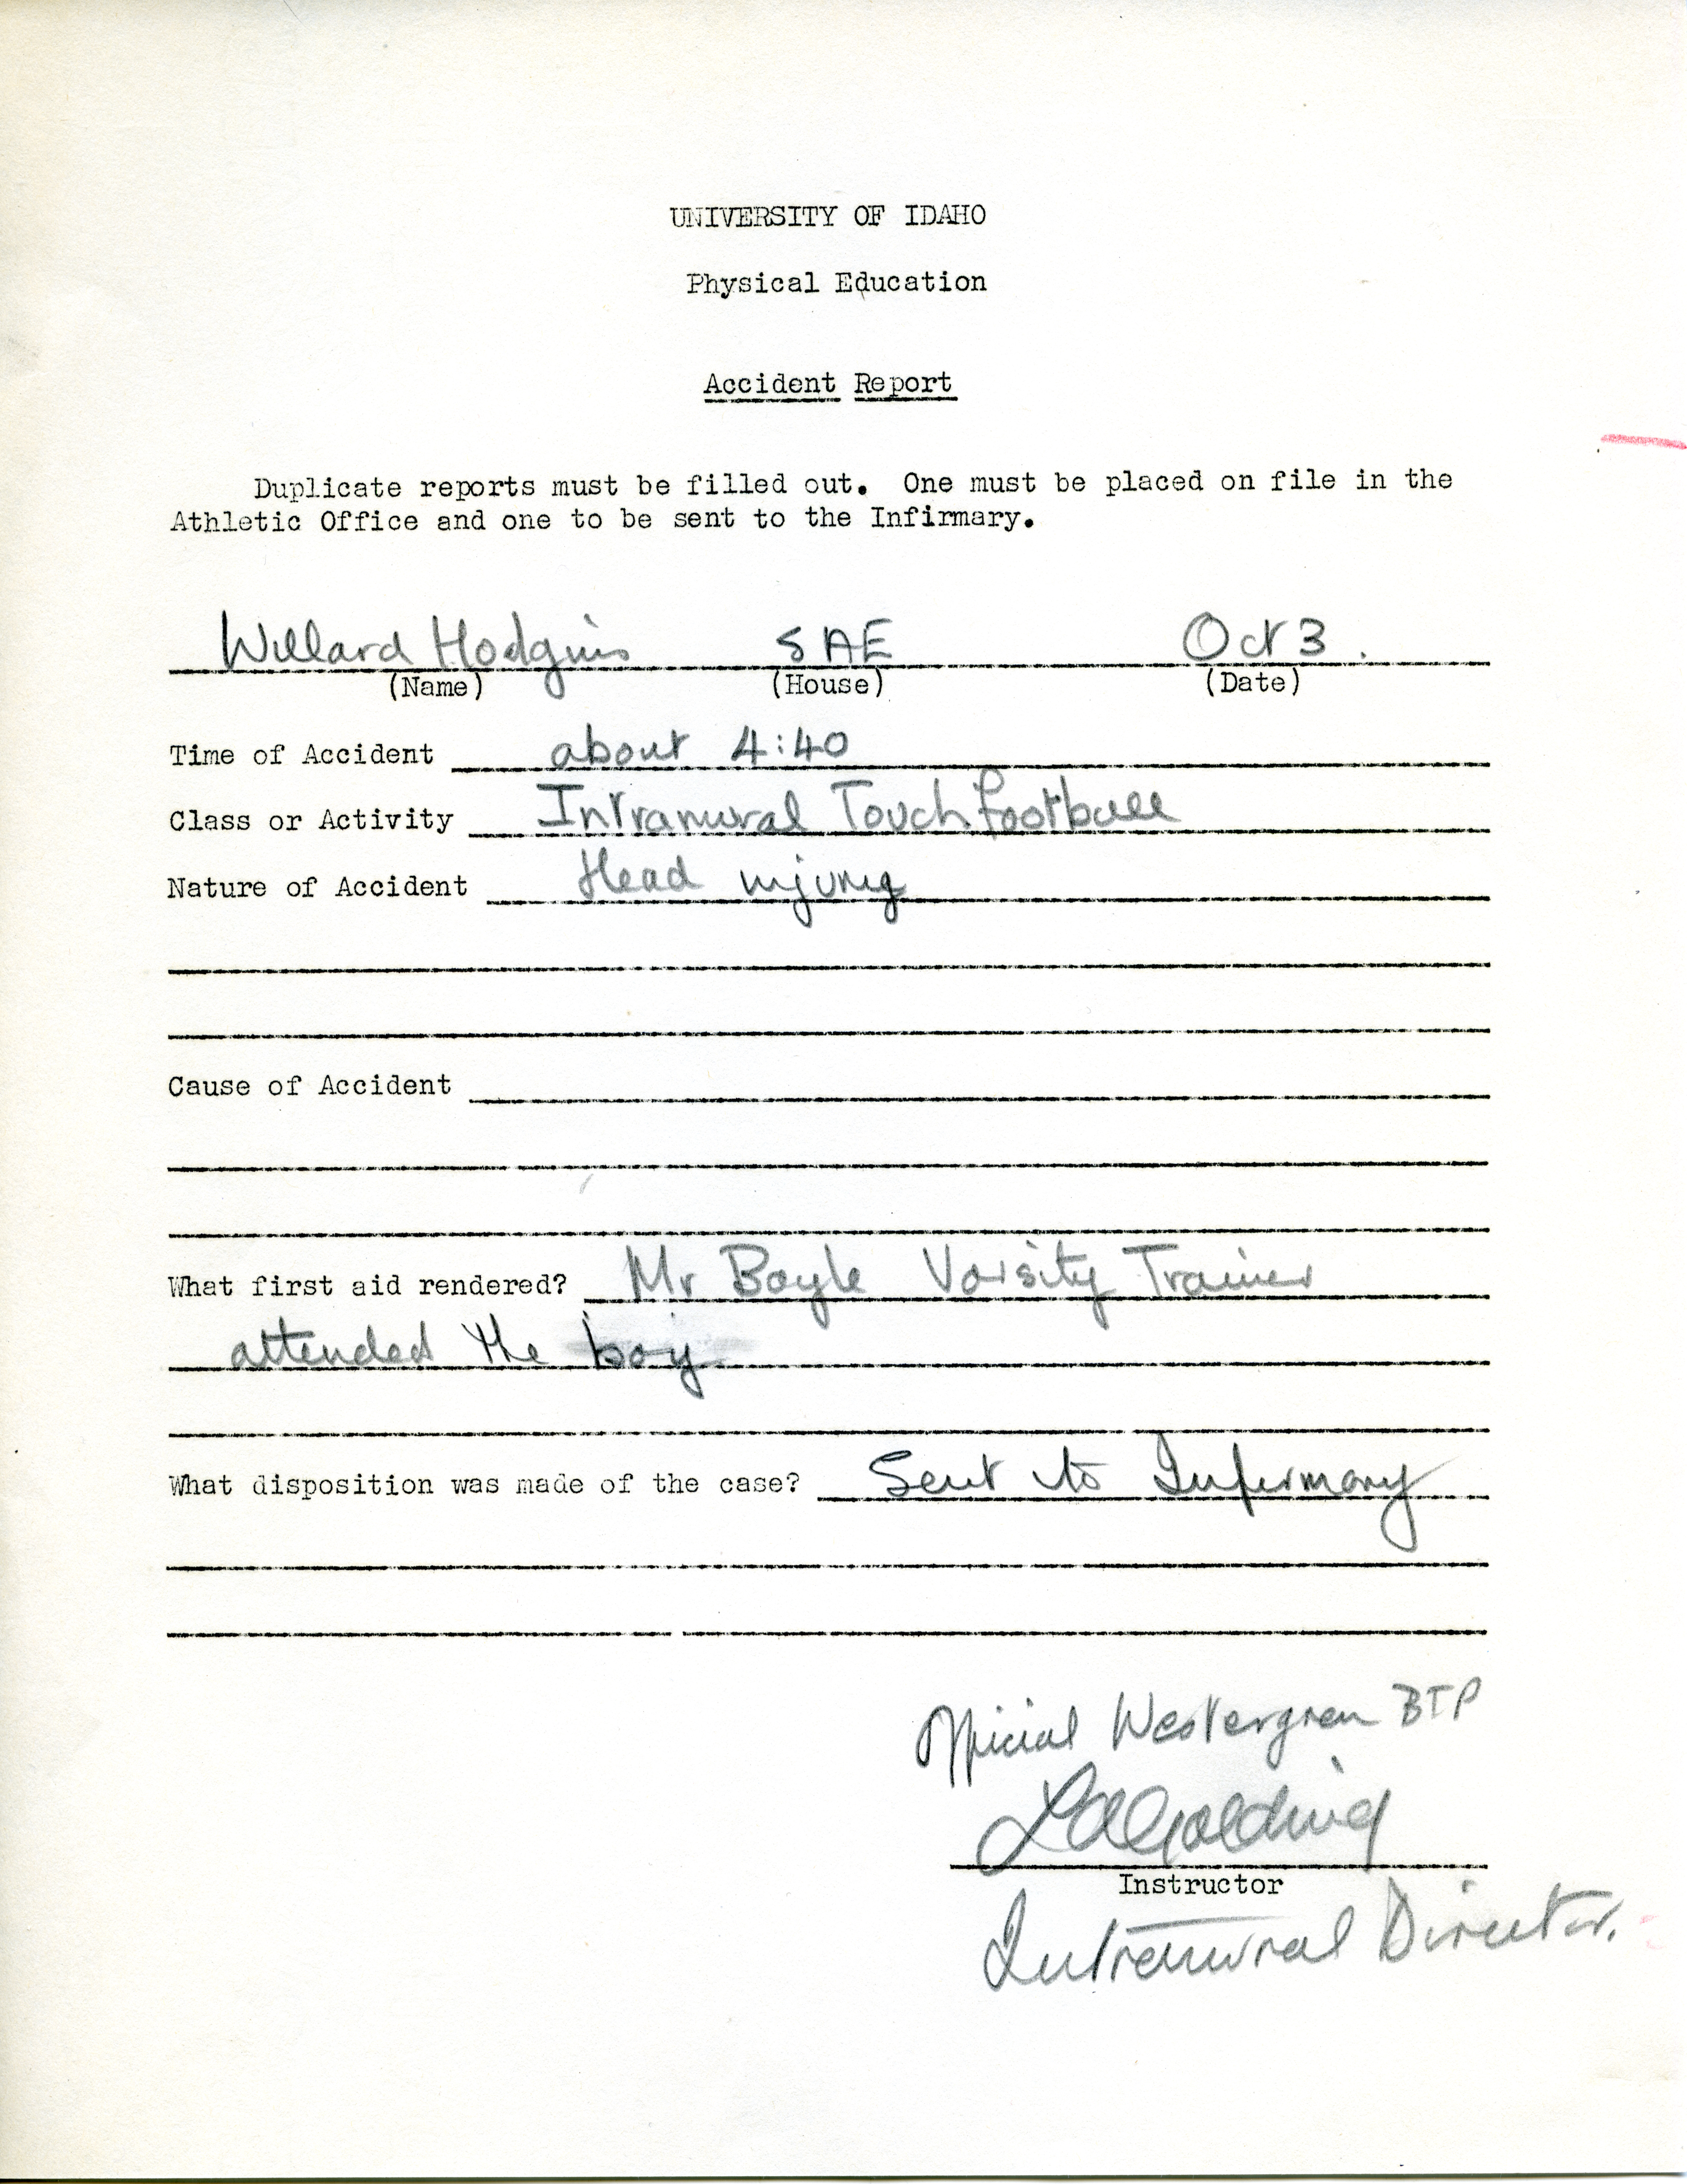 UNIVERSITY OF IDAHO
Physical Education
Accident Report
Duplicate reports must be filled out. One must be placed on file in the
Athletic Office and one to be sent to the Infirmary.
Willard Hodgins SAE Oct 3.
(Name) (House) (Date)
Time of Accident about 4:40
Class or Activity Intramural Touch football
Nature of Accident Head injury
Cause of Accident
What first aid rendered? Mr Boyle Varsity Trainer
attended the boy
What disposition was made of the case? Sent to Infirmary
Official Westergren BTP
LA Golding
Instructor
Intramural Director.